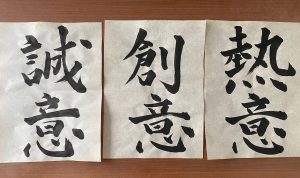 熱意
創意
誠意